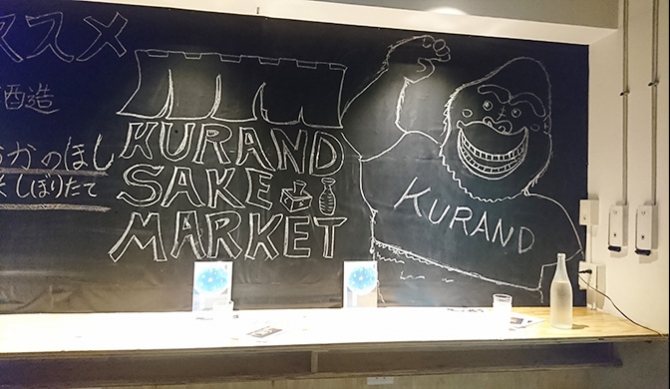 ススメ
酒造
かのほし
しぼりたて
KURAND
SAKE
MARKET
KURAND